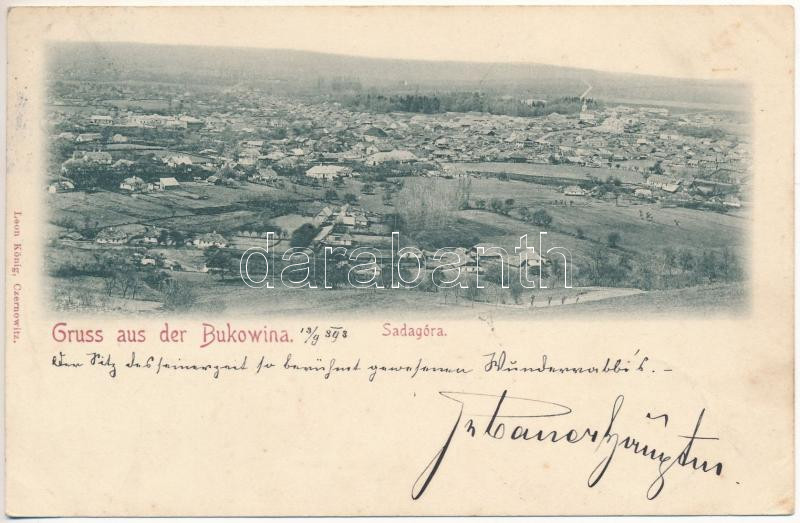 Leon König, Czernowitz.
darabanth
Gruss aus der Bukowina. 13/9
Sadagóra.
Der Sitz des seinerzeit so berühmt gewesenen Wunderrabbi's. –